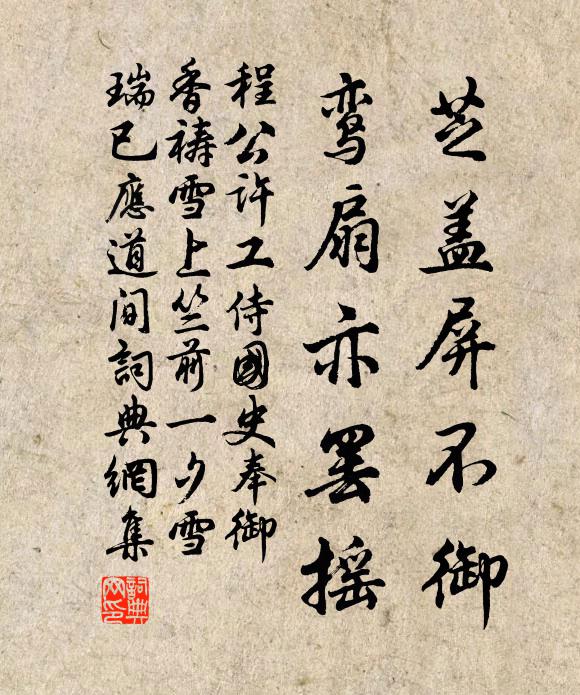 芝盖屏不御
鸾扇亦罢摇
程公许工侍國史奉御
香祷雪上竺前一夕雪
瑞已應道间詞典網集
詞典网印